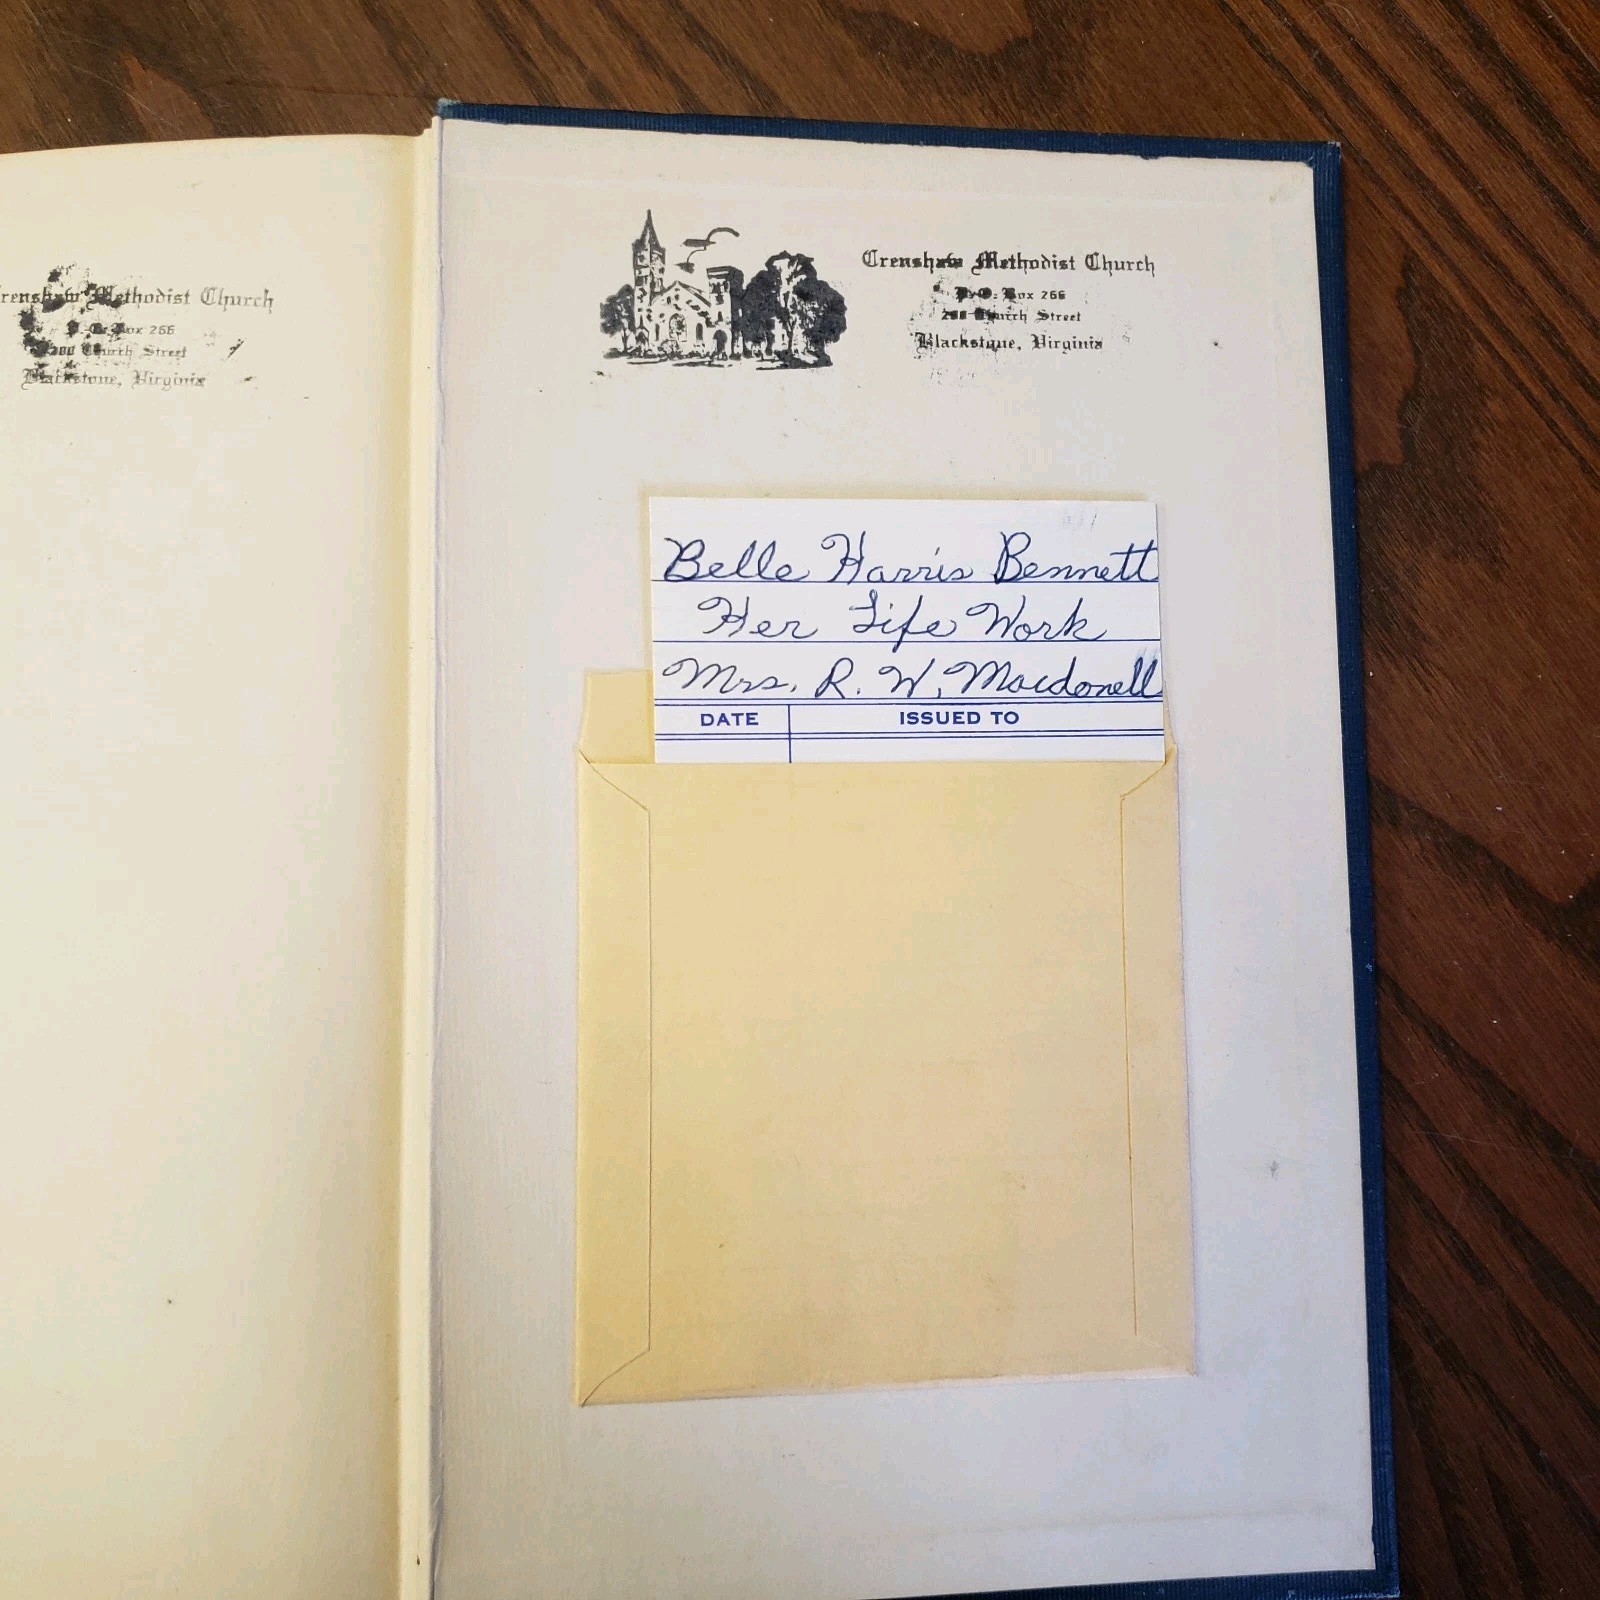 Crenshaw Methodist Church
P. O. Box 266
200 Church Street
Blackstone, Virginia
Crenshaw Methodist Church
P. O. Box 266
200 Church Street
Blackstone, Virginia
Belle Harris Bennett
Her Life Work
Mrs. R. W. Macdonell
DATE ISSUED TO